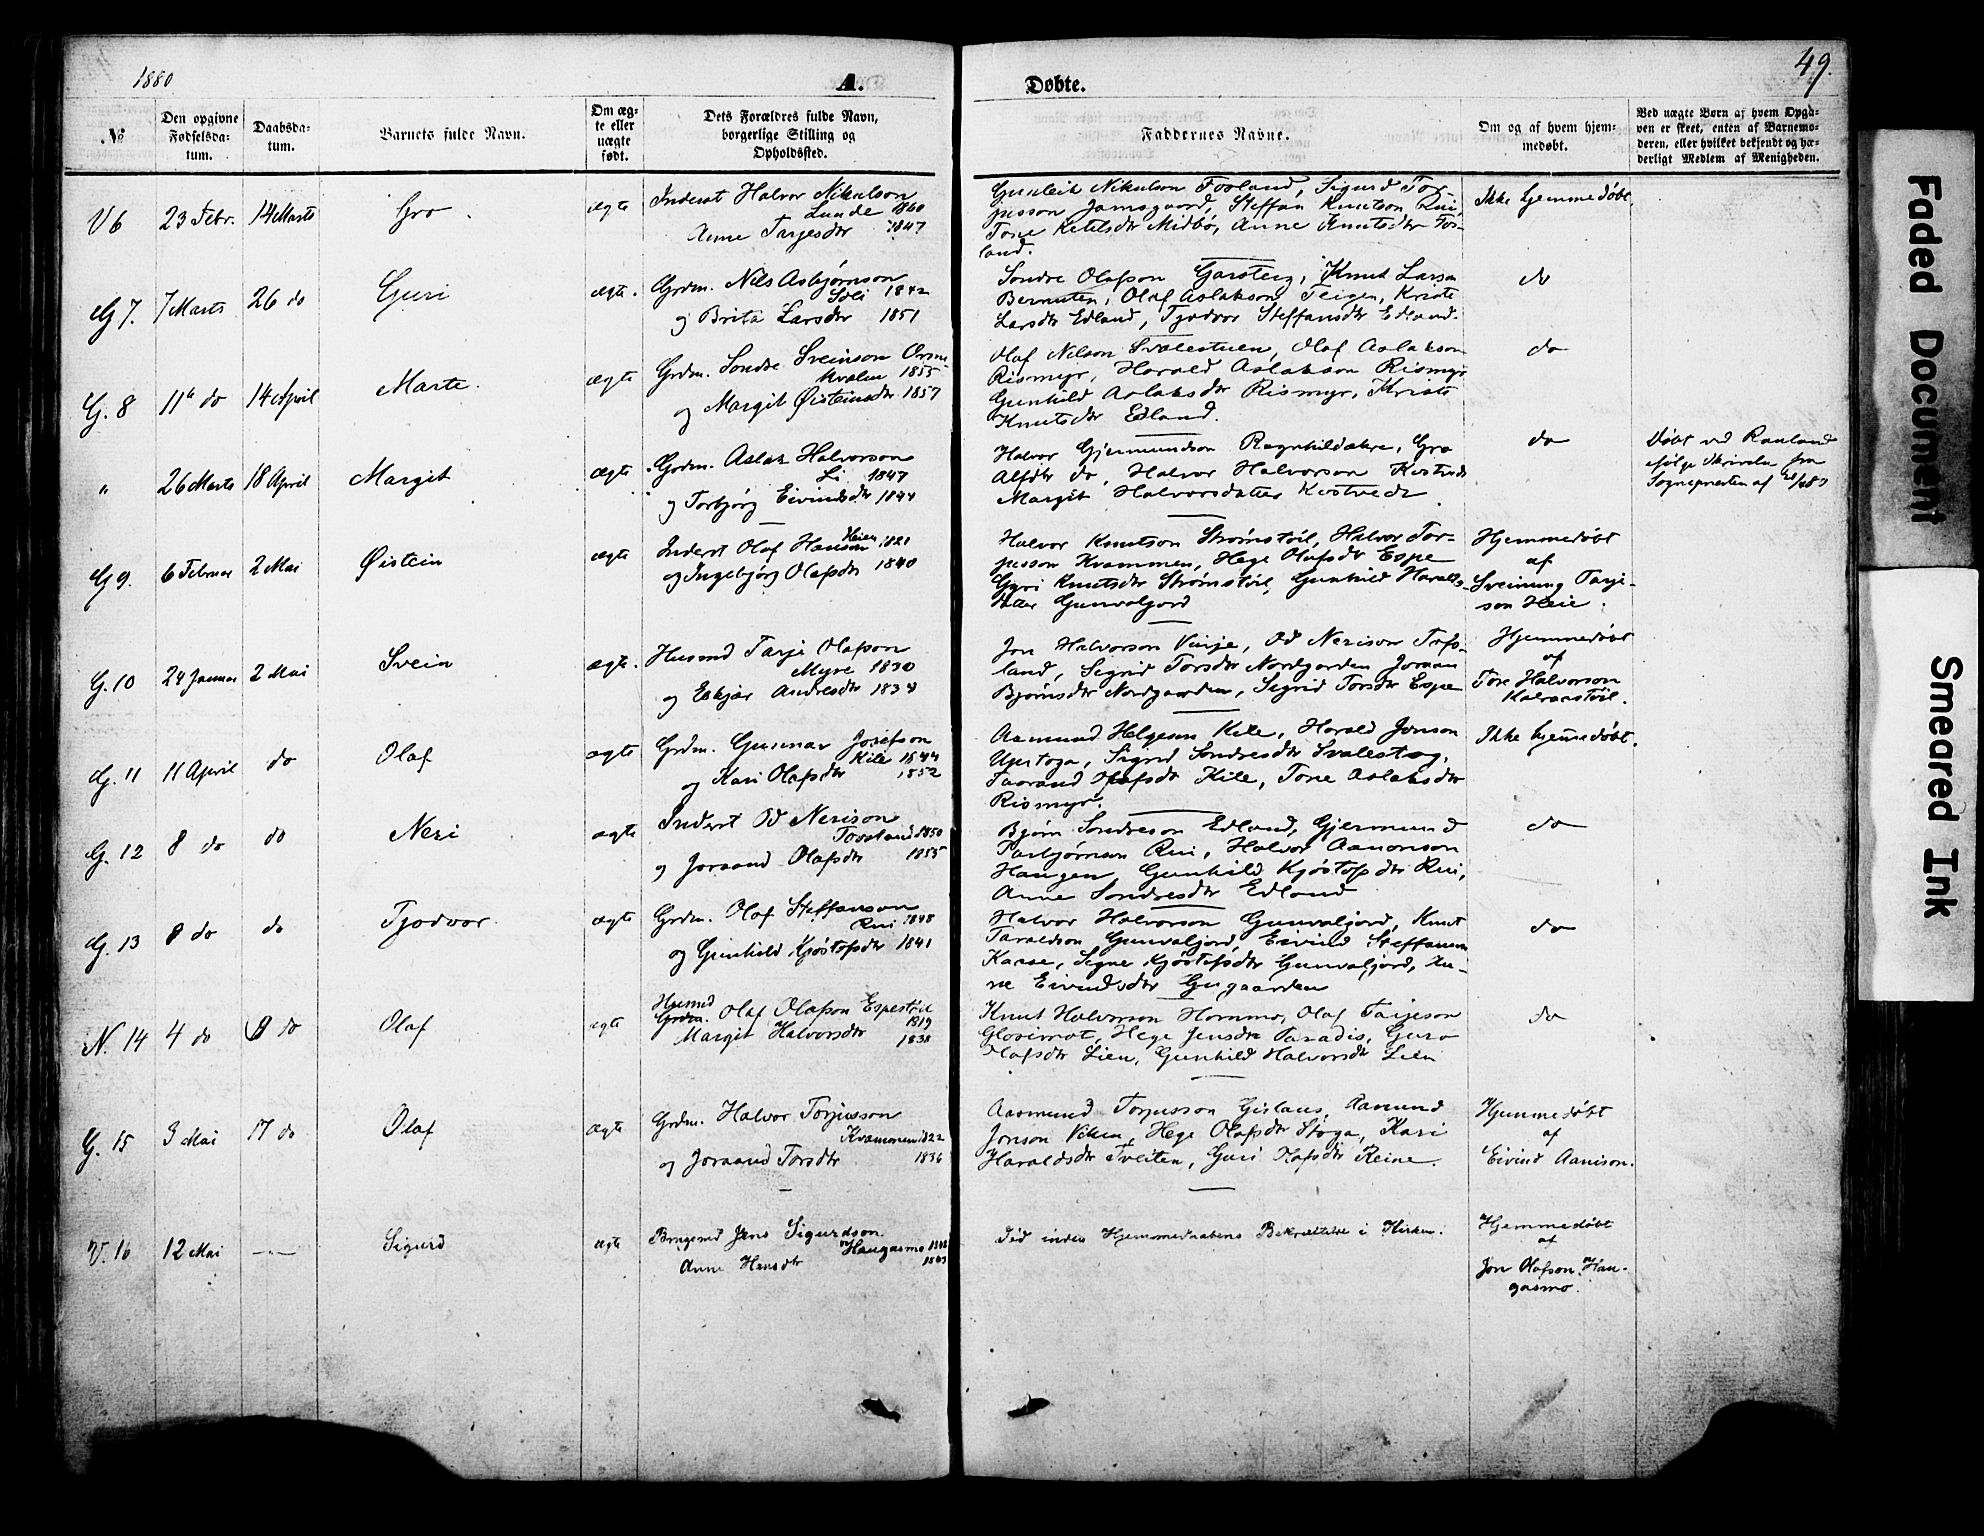 1880
A.
Døbte.
49.
No
Den opgivne Fødselsdatum.
Daabsdatum.
Barnets fulde Navn.
Om ægte eller uægte født.
Dets Forældres fulde Navn, borgerlige Stilling og Opholdssted.
Faddernes Navne.
Om og af hvem hjemmedøbt.
Ved uægte Børn af hvem Opgaven er skeet, enten af Barnemoderen, eller hvilket bekjendt og hæderligt Medlem af Menigheden.
V 6 23 Febr. 14 Marts Gro ægte
Inderst Halvor Nikulson
Lunde 1860
Anne Tarjesdtr 1847
Gunleik Nikulson Fosland, Sigurd Tor-
jusson Jamsgaard, Steffan Knutson Rui,
Tone Ketilsdtr Midbø, Anne Knutsdtr Fos-
land.
Ikke hjemmedøbt.
G 7. 7 Marts 26 do Guri ægte.
Grdm. Nils Asbjørnson
1842
og Brita Larsdtr 1851
Sondre Olafson Garsteig, Knut Larson
Bernuten, Olaf Aslakson Teigen, Kriste
Larsdtr Edland, Tjodvor Steffansdtr Edland.
do
G. 8 11te do 14 April Marte. ægte
Grdm. Sondre Sveinson Orme
kvalen 1855
og Margit Øisteinsdtr 1857
Olaf Nilson Svalestuen, Olaf Aslakson
Rismyr, Harald Aslakson Rismyr
Gunhild Aslaksdtr Rismyr, Kriste
Knutsdtr Edland.
do
" 26 Marts 18 April Margit ægte
Grdm. Aslak Halvorson
Li 1847
og Torbjørg Eivindsdtr 1844
Halvor Gjermundson Ragnhildakre, Gro
Alfdtr do, Halvor Halvorson Kostveit
Margit Halvorsdatter Kostveit.
do
Døbt ved Rauland
ifølge Skrivelse fra
Sognepresten af
G 9. 6 Februar 2 Mai Øistein ægte
Inderst Olaf Hanson
Heien 1821
og Ingebjørg Olafsdtr 1840
Halvor Knutson Strømstøil, Halvor Tor-
jusson Kvammen, Hege Olafsdtr Espe
Gyri Knutsdtr Strømstøil, Gunhild Haralds-
datter Gunvaljord
Hjemmedøbt
af
Sveinung Tarje-
son Heie.
G. 10 24 Januar 2 Mai Svein ægte.
Husmd Tarje Olafson
Myre 1830
og Eskjær Andresdtr 1834
Jon Halvorson Vinje, Od Nerison Tofs-
land, Sigrid Torsdtr Nordgarden Joraan
Bjørnsdtr Nordgaarden, Sigrid Torsdtr Espe
Hjemmedøbt
af
Tore Halvorson
G. 11 11 April do Olaf ægte
Grdm. Gunnar Josefson
Kile 1844
og Kari Olafsdtr 1852
Aamund Helgeson Kile, Harald Jonson
Upistoga, Sigrid Sondresdtr Svalestog,
Taarand Olafsdtr Kile, Tone Aslaksdtr
Rismyr.
Ikke hjemmedøbt.
G. 12 8 do do Neri ægte
Inderst Od Nerison
Tovsland 1850
og Joraand Olafsdtr 1855
Bjørn Sondreson Edland, Gjermund
Torbjørnson Rui, Halvor Aanonson
Haugen, Gunhild Kjøstofsdtr Rui,
Anne Sondresdtr Edland
do
G. 13 8 do do Tjodvor. ægte
Grdm. Olaf Steffanson
Rui 1848
og Gunhild Kjøstofsdtr 1841
Halvor Halvorson Gunvaljord, Knut
Taraldson Gunvaljord, Eivind Steffanson
Kaase, Signe Kjøstofsdtr Gunvaljord, An-
ne Eivindsdtr Gugaarden
do
N. 14 4 do 8 do Olaf ægte
Husmd
Grdm. Olaf Olafson Espestøil
1819
Margit Halvorsdtr 1838
Knut Halvorson Hommo, Olaf Tarjeson
Glosimot, Hege Jensdtr Paradis, Guro
Olafsdtr Lien, Gunhild Halvorsdtr Lien
do
G. 15 3 Mai 17 do Olaf ægte
Grdm. Halvor Torjusson
Kvammen 1822
og Joraand Torsdtr 1836
Aasmund Torjusson Gislaus, Aamund
Jonson Viken, Hege Olafsdtr Stoga, Kari
Haraldsdtr Tveiten, Guri Olafsdtr Reine.
Hjemmedøbt
af
Eivind Aanison.
V. 16 12 Mai —"— Sigurd ægte
Brugsmd Jens Sigurdson
Haugasmo 1848
Anne Hansdtr 1843
Død inden Hjemmedaabens Bekræftelse i Kirken.
Hjemmedøbt
af
Jon Olafson Hau-
gasmo.
Faded Document
Smeared Ink